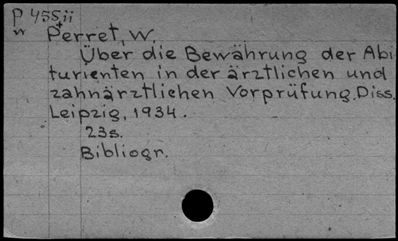 P 455ii
w Perret, W.
Über die Bewährung der Abi
turienten in der ärztlichen und
zahnärztlichen Vorprüfung. Diss.
Leipzig, 1934.
23s.
Bibliogr.